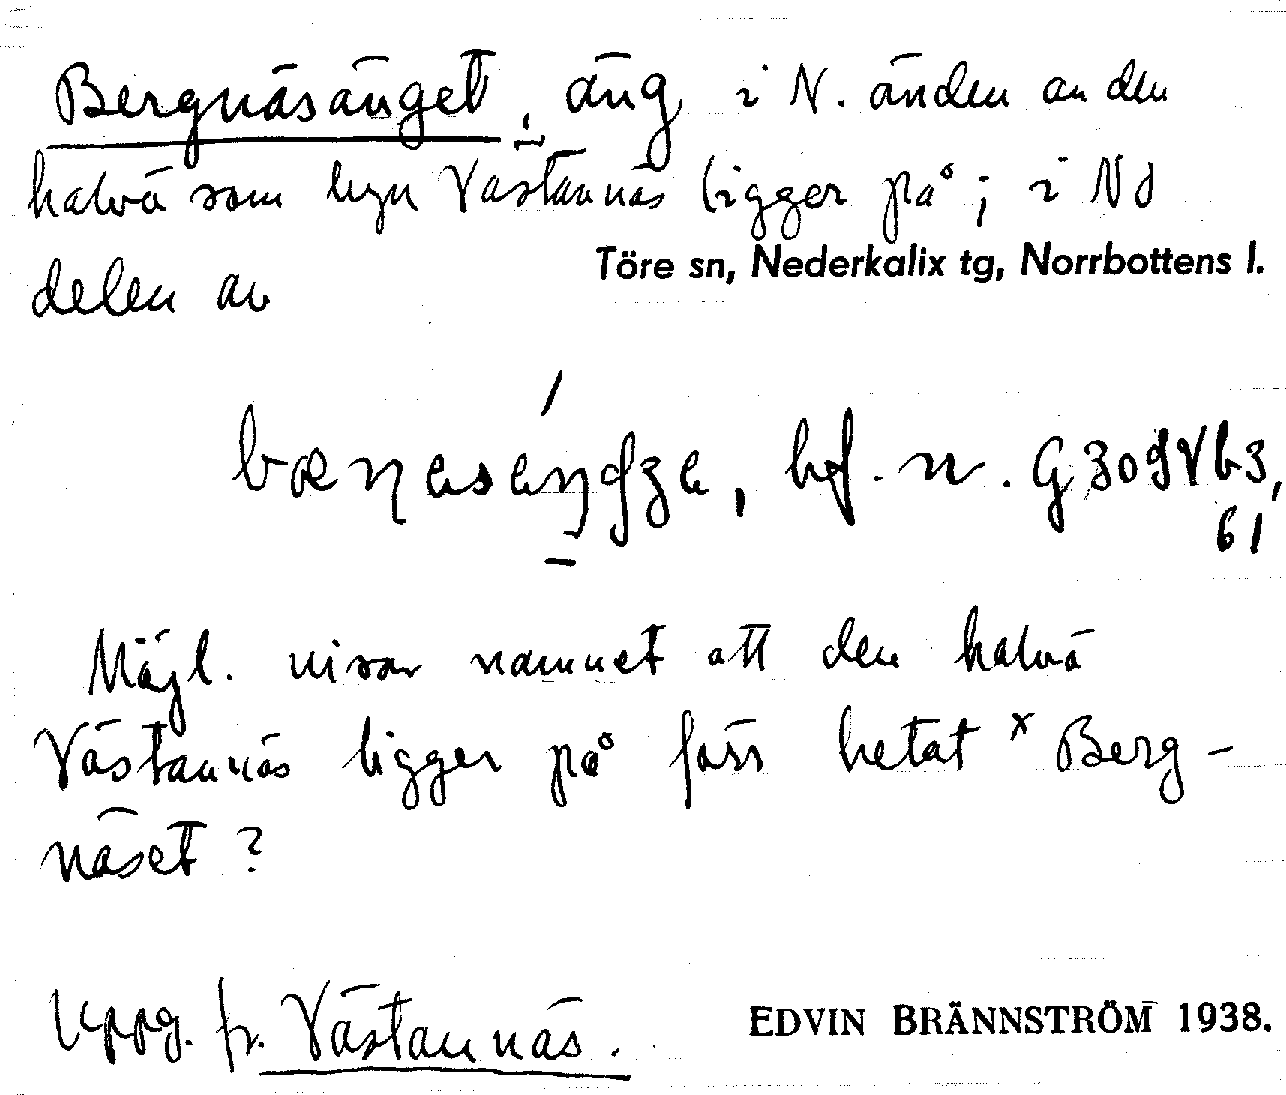 Bergnäsänget, äng i N. änden av den
halvö som byn Västannäs ligger på; i NÖ
delen av
Töre sn, Nederkalix tg, Norrbottens l.
bf. n.
61
Möjl. visar namnet att den halvö
Västannäs ligger på förr hetat × Berg-
näset?
Uppg. fr. Västannäs.
EDVIN BRÄNNSTRÖM 1938.